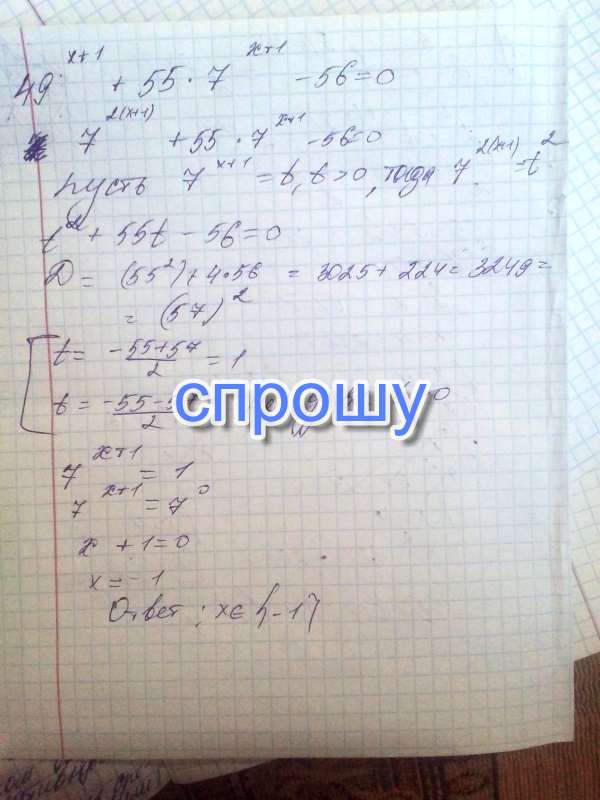 49^(x+1) + 55 · 7^(x+1) - 56 = 0
7^(2(x+1)) + 55 · 7^(x+1) - 56 = 0
пусть 7^(x+1) = t, t > 0, тогда 7^(2(x+1)) = t^2
t^2 + 55t - 56 = 0
D = (55^2) + 4·56 = 3025 + 224 = 3249 =
= (57)^2
t = (-55+57)/2 = 1
t = (-55-57)/2
спрошу
7^(x+1) = 1
7^(x+1) = 7^0
x + 1 = 0
x = -1
Ответ: x ∈ {-1}